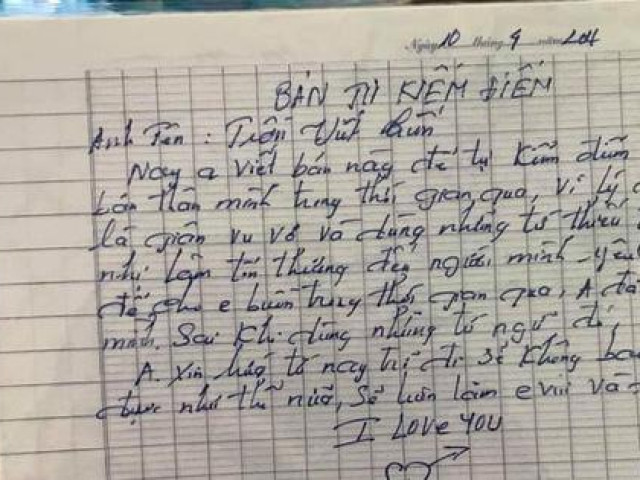 Ngày 10 tháng 9 năm 201
BẢN TỰ KIỂM ĐIỂM
Anh Tên : Trần Viết
Nay a viết bản này để tự kiểm điểm
bản thân mình trong thời gian qua, vì lý
là giận vu vơ và dùng những từ thiếu
nhị làm tổn thương đến người mình yêu
để cho e buồn trong thời gian qua, A đã
mình. Sai khi dùng những từ ngữ đó,
A. Xin hứa từ nay trở đi sẽ không ba
được như thế nữa, Sẽ luôn làm e vui và
I LOVE YOU